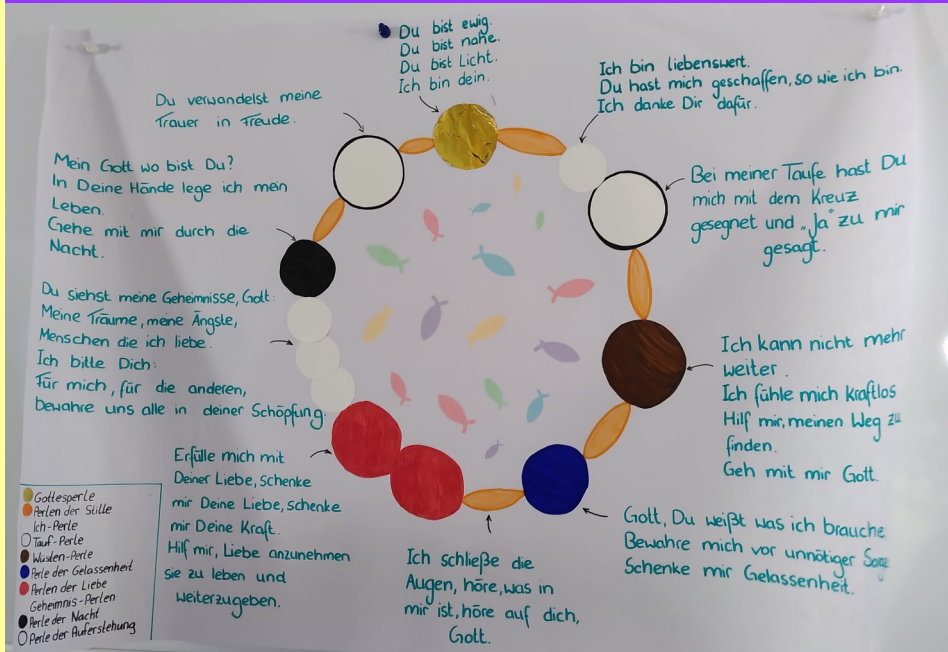 Du bist ewig.
Du bist nahe.
Du bist Licht.
Ich bin dein.
Ich bin liebenswert.
Du hast mich geschaffen, so wie ich bin.
Ich danke Dir dafür.
Bei meiner Taufe hast Du
mich mit dem Kreuz
gesegnet und „Ja" zu mir
gesagt.
Ich kann nicht mehr
weiter.
Ich fühle mich kraftlos
Hilf mir, meinen Weg zu
finden.
Geh mit mir Gott.
Gott, Du weißt was ich brauche
Bewahre mich vor unnötiger Sorge
Schenke mir Gelassenheit.
Ich schließe die
Augen, höre, was in
mir ist, höre auf dich,
Gott.
Erfülle mich mit
Deiner Liebe, schenke
mir Deine Liebe, schenke
mir Deine Kraft.
Hilf mir, Liebe anzunehmen
sie zu leben und
weiterzugeben.
Du siehst meine Geheimnisse, Gott:
Meine Träume, meine Ängste,
Menschen die ich liebe.
Ich bitte Dich:
Für mich, für die anderen,
bewahre uns alle in deiner Schöpfung.
Mein Gott wo bist Du?
In Deine Hände lege ich mein
Leben.
Gehe mit mir durch die
Nacht.
Du verwandelst meine
Trauer in Freude.
Gottesperle
Perlen der Stille
Ich-Perle
Tauf-Perle
Wüsten-Perle
Perle der Gelassenheit
Perlen der Liebe
Geheimnis-Perlen
Perle der Nacht
Perle der Auferstehung